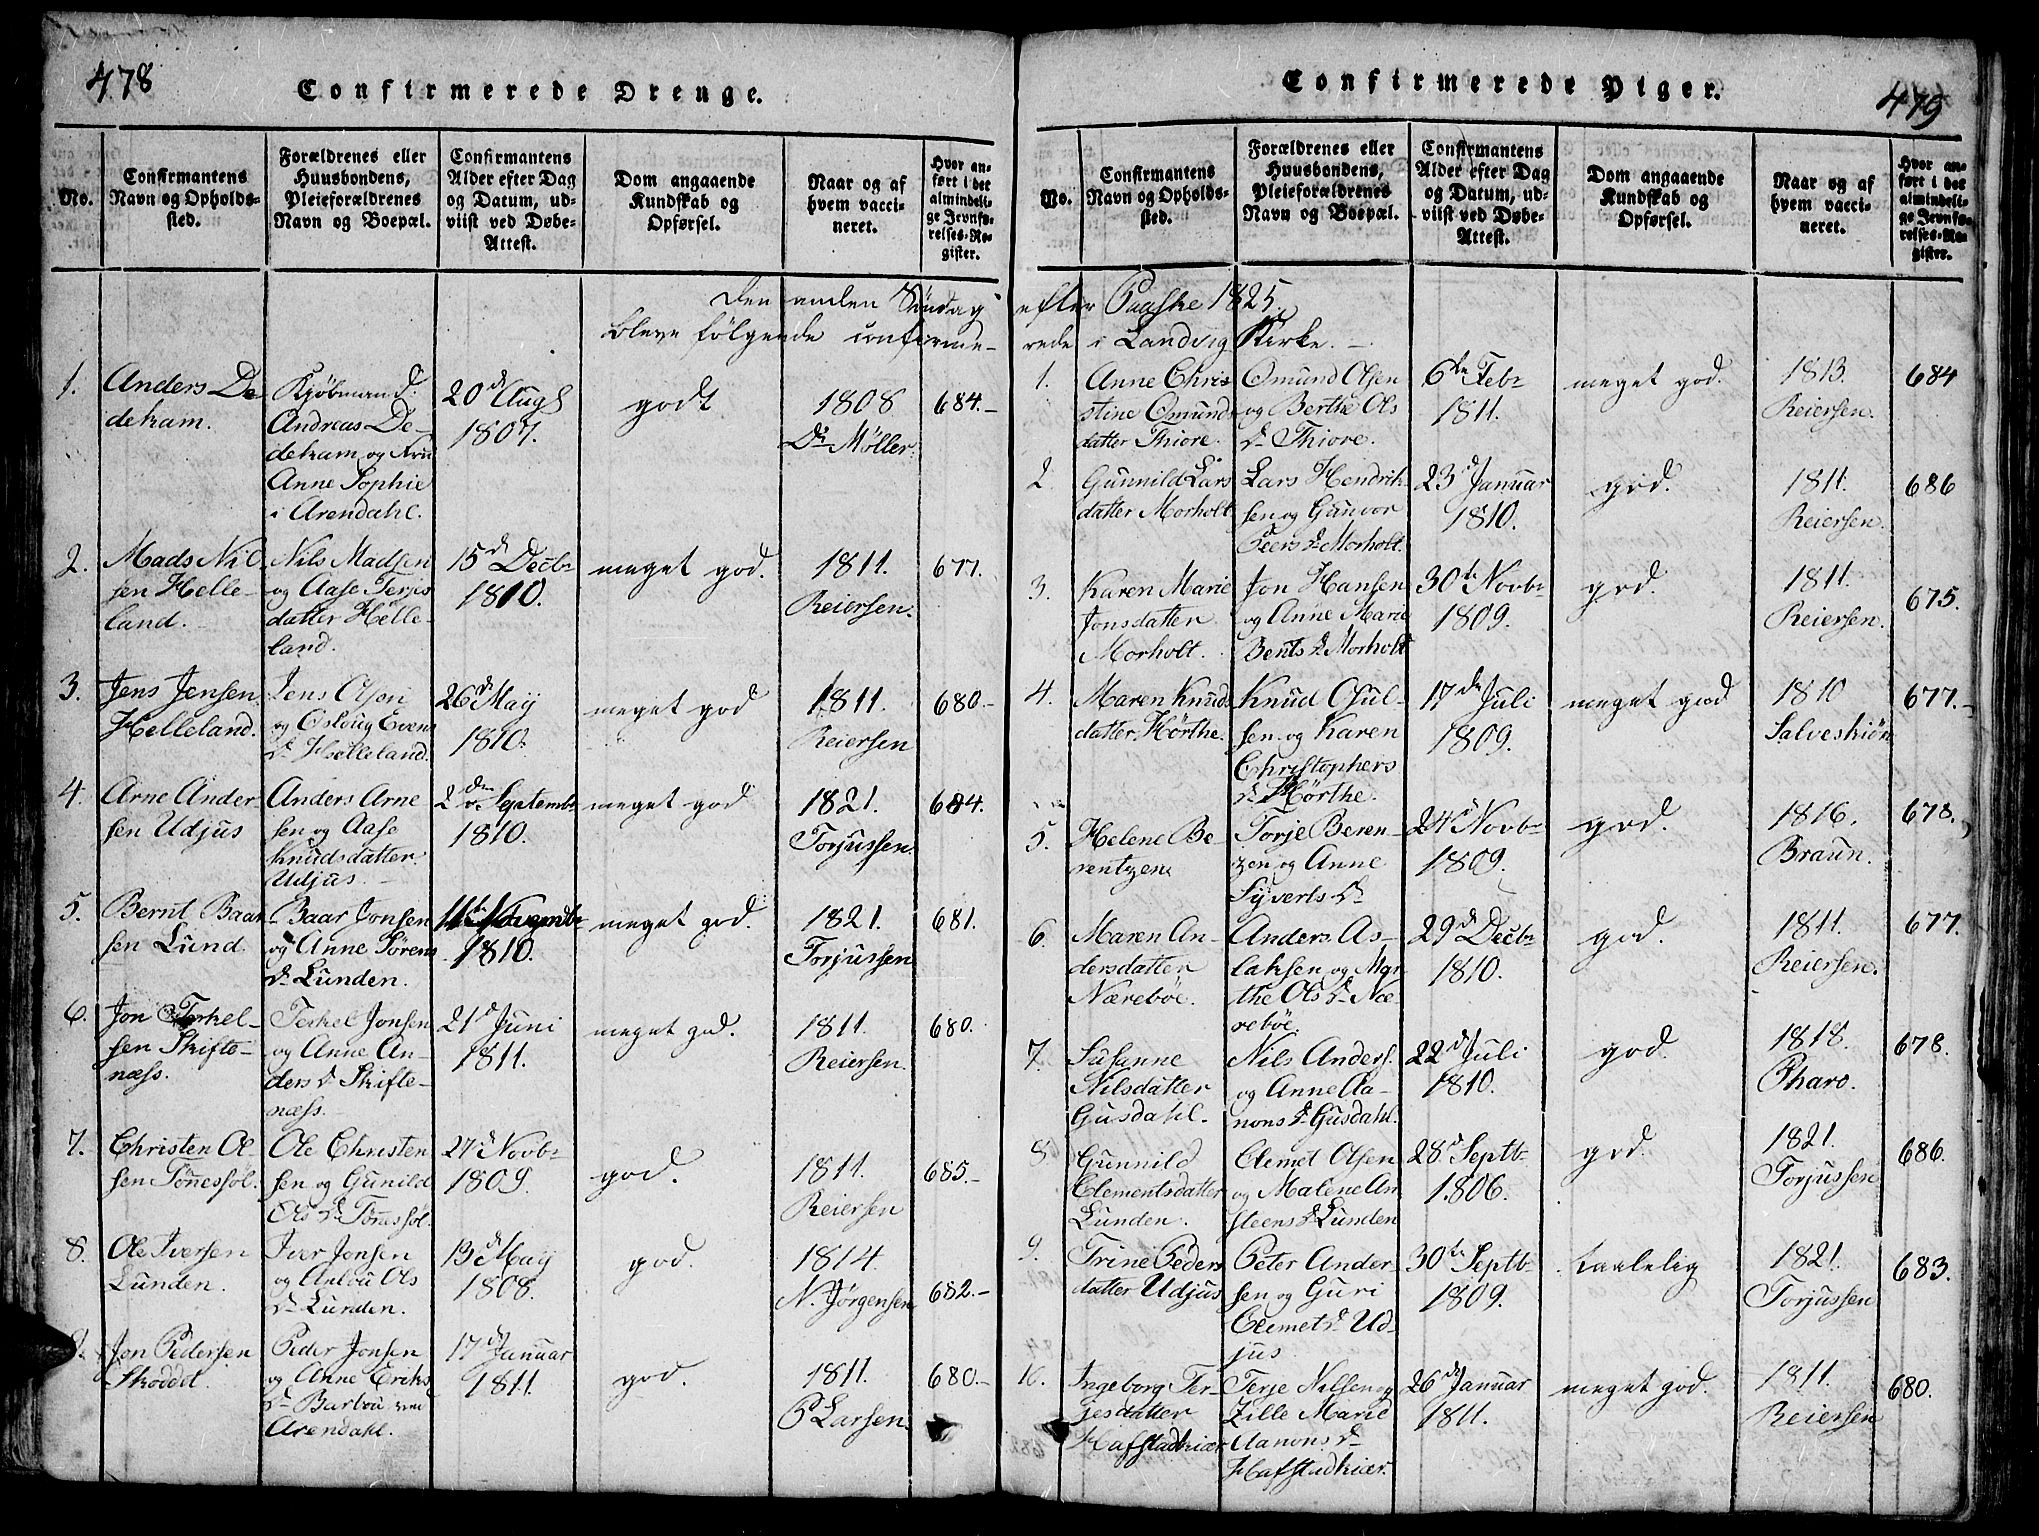 478
Confirmerede Drenge.
No.
Confirmantens
Navn og Opholds-
sted.
Forældrenes eller
Huusbondens,
Pleieforældrenes
Navn og Boepæl.
Confirmantens
Alder efter Dag
og Datum, ud-
viist ved Døbe-
Attest.
Dom angaaende
Kundskab og
Opførsel.
Naar og af
hvem vacci-
neret.
Hvor an-
ført i det
almindeli-
ge Jevnfø-
relses-Re-
gister.
Den anden Søndag
bleve følgende confirme-
1.
Anders De-
dekam.
Kjøbmand
Andreas De-
dekam og Fru
Anne Sophie
i Arendahl.
20d Aug
1807.
godt
1808
Dr Møller.
684.-
2.
Mads Nil
sen Helle-
land.
Nils Madsen
og Aase Terjes
datter Helle-
land.
15d Decbr
1810.
meget god.
1811.
Reiersen.
677.
3.
Jens Jensen
Helleland.
Jens Olsen
og Osloug Evens
Dr Helleland.
26d May
1810.
meget god
1811.
Reiersen
680.-
4.
Arne Ander-
sen Udjus
Anders Arne
sen og Aase
Knudsdatter
Udjus.
2den Septembr
1810.
meget god
1821.
Torjussen.
684.
5.
Bernt Baar
sen Lund
Baar Jonsen
og Anne Sørens
Dr Lunden.
11te Novembr
1810.
meget god.
1821.
Torjussen
681.
6.
Jon Terkel-
sen Skifte-
næss.
Terkel Jonsen
og Anne An-
ders Dr Skifte-
næss.
21d Juni
1811.
meget god.
1811.
Reiersen.
680.
7.
Christen Ol-
sen Tønnessøl.
Ole Christen
sen og Gunild
Ols Dr Tønessøl.
27d Novbr
1809.
god.
1811.
Reiersen
685.-
8.
Ole Iversen
Lunden.
Iver Jonsen
og Anlou Ols
Dr Lunden.
13d May
1808.
god.
1814.
N. Jørgensen
682.-
9.
Jon Pedersen
Skoddet.
Peder Jonsen
og Anne Eriks
Dr Barbou ved
Arendahl.
17d Januar
1811.
god.
1811.
P Larsen.
680.-
Confirmerede Piger.
479
No.
Confirmantens
Navn og Opholds-
sted.
Forældrenes eller
Huusbondens,
Pleieforældrenes
Navn og Boepæl.
Confirmantens
Alder efter Dag
og Datum, ud-
viist ved Døbe-
Attest.
Dom angaaende
Kundskab og
Opførsel.
Naar og af
hvem vacci-
neret.
Hvor an-
ført i det
almindeli-
ge Jevnfø-
relses-Re-
gister.
efter Paaske 1825.
rede i Landvig Kirke.
1.
Anne Chris
stine Omunds
datter Thiore.
Omund Olsen
og Berthe Ols
Dr Thiore.
6te Febr
1811.
meget god.
1813.
Reiersen.
684
2.
Gunnild Lars
datter Morholt
Lars Hendrik
sen og Gunvor
Peers Dr Morholt.
23d Januar
1810.
god.
1811.
Reiersen.
686
3.
Karen Marie
Jonsdatter
Morholt.
Jon Hansen
og Anne Marie
Bents Dr Morholt
30te Novbr
1809.
god.
1811.
Reiersen.
675.
4.
Maren Knuds
datter Hørthe.
Knud Osul-
sen og Karen
Christophers
Dr Hørthe.
17de Juli
1809.
meget god
1810
Salveskiön
677.-
5.
Helene Be-
rentzen
Torje Beren-
zen og Anne
Syverts Dr
24d Novbr
1809.
god.
1816.
Braun.
678.
6.
Maren An-
dersdatter
Nærebøe.
Anders As-
laksen og Mgr
the Ols Dr Næ-
rebøe.
29d Decbr
1810.
god.
1811.
Reiersen.
677.
7.
Susanne
Nilsdatter
Gusdahl.
Nils Anders.
og Anne Aa-
nons Dr Gusdahl.
22d Juli
1810.
god.
1818.
Pharo.
678.
8.
Gunnild
Clementsdatter
Lunden.
Clemet Olsen
og Malene An
steens Dr Lunden
28d Septbr
1806.
god.
1821.
Torjussen
686.
9.
Trine Peders
datter Udjus
Peter Ander-
sen og Guri
Clemets Dr Ud-
jus
30te Septbr
1809.
taalelig
1821.
Torjussen
683.
10.
Ingeborg Ter-
jesdatter
Hafstadkiær
Terje Nilsen og
Zille Marie
Aanons Dr
Hafstadkiær.
26d Januar
1811.
meget god.
1811.
Reiersen
680.